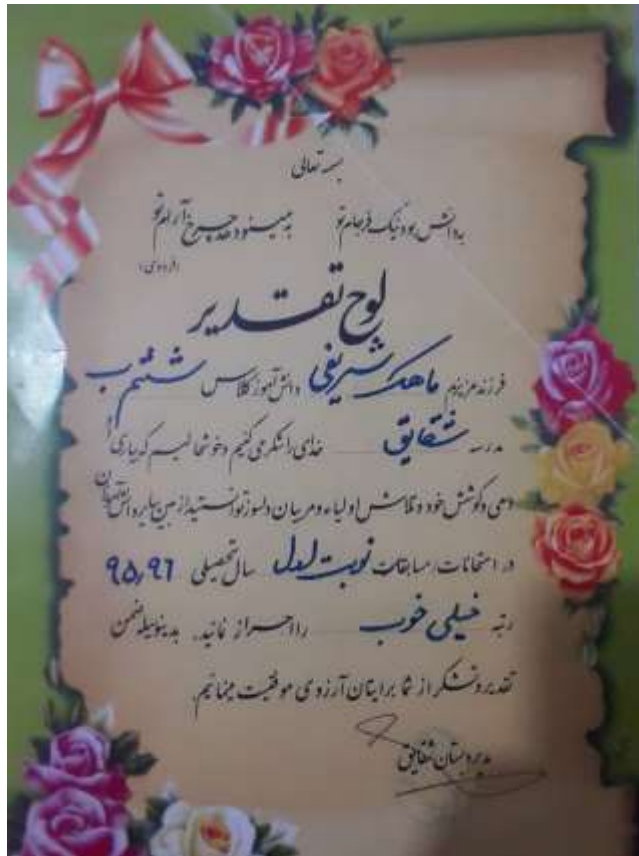 بسمه تعالی
به دانش بود نیک فرجام تو به مینو دهد چرخ آرام تو
(فردوسی)
لوح تقدیر
فرزند عزیزم ماهک شریفی دانش آموز کلاس ششم ب
مدرسه شقایق خدای را شکر می کنیم و خوشحالیم که بیاری
و کوشش خود و تلاش اولیاء و مربیان دلسوز توانستید از بین سایر دانش آموزان
در امتحانات/مسابقات نوبت اول سال تحصیلی ۹۵،۹۶
رتبه خیلی خوب را احراز نمائید. بدینوسیله ضمن
تقدیر و تشکر از شما برایتان آرزوی موفقیت مینمائیم.
مدیر دبستان شقایق